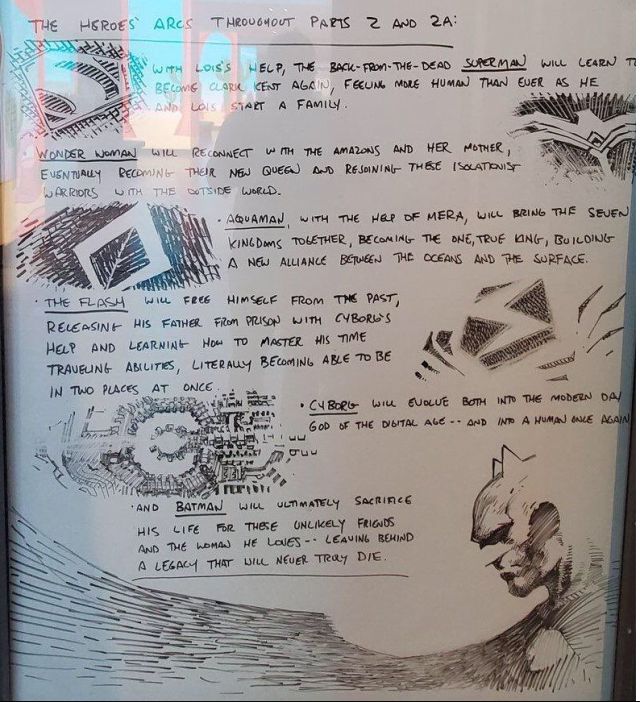 THE HEROES' ARCS THROUGHOUT PARTS 2 AND 2A:
WITH LOIS'S HELP, THE BACK-FROM-THE-DEAD SUPERMAN WILL LEARN TO
BECOME CLARK KENT AGAIN, FEELING MORE HUMAN THAN EVER AS HE
AND LOIS START A FAMILY.
· WONDER WOMAN WILL RECONNECT WITH THE AMAZONS AND HER MOTHER,
EVENTUALLY BECOMING THEIR NEW QUEEN AND REJOINING THESE ISOLATIONIST
WARRIORS WITH THE OUTSIDE WORLD.
· AQUAMAN, WITH THE HELP OF MERA, WILL BRING THE SEVEN
KINGDOMS TOGETHER, BECOMING THE ONE, TRUE KING, BUILDING
A NEW ALLIANCE BETWEEN THE OCEANS AND THE SURFACE.
· THE FLASH WILL FREE HIMSELF FROM THE PAST,
RELEASING HIS FATHER FROM PRISON WITH CYBORG'S
HELP AND LEARNING HOW TO MASTER HIS TIME
TRAVELING ABILITIES, LITERALLY BECOMING ABLE TO BE
IN TWO PLACES AT ONCE.
· CYBORG WILL EVOLVE BOTH INTO THE MODERN DAY
GOD OF THE DIGITAL AGE -- AND INTO A HUMAN ONCE AGAIN
· AND BATMAN WILL ULTIMATELY SACRIFICE
HIS LIFE FOR THESE UNLIKELY FRIENDS
AND THE WOMAN HE LOVES -- LEAVING BEHIND
A LEGACY THAT WILL NEVER TRULY DIE.